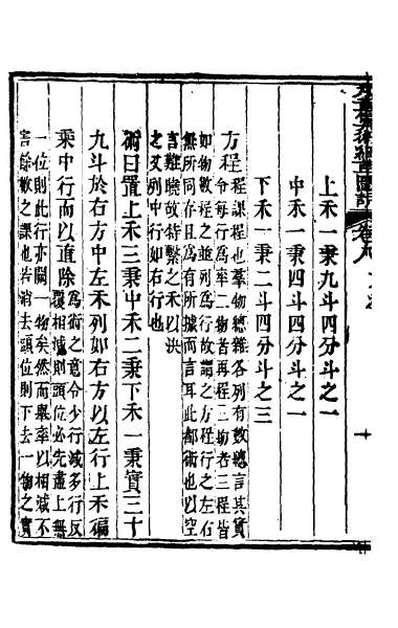 上禾一秉九斗四分斗之一
中禾一秉四斗四分斗之一
下禾一秉二斗四分斗之三
方程
程課程也羣物總雜各列有數總言其實
令每行為率二物者再程三物者三程皆
如物數程之並列為行故謂之方程行之左右
無所同存且為有所據而言耳此都術也以空
言難曉故特繫之禾以決
之又列中行如右行也
術曰置上禾三秉中禾二秉下禾一秉實三十
九斗於右方中左禾列如右方以左行上禾徧
乘中行而以直除
為術之意令少行減多行反
覆相減則頭位必先盡上無
一位則此行亦闕一物矣然而舉率以相減不
害餘數之課也若消去頭位則下去一物之實